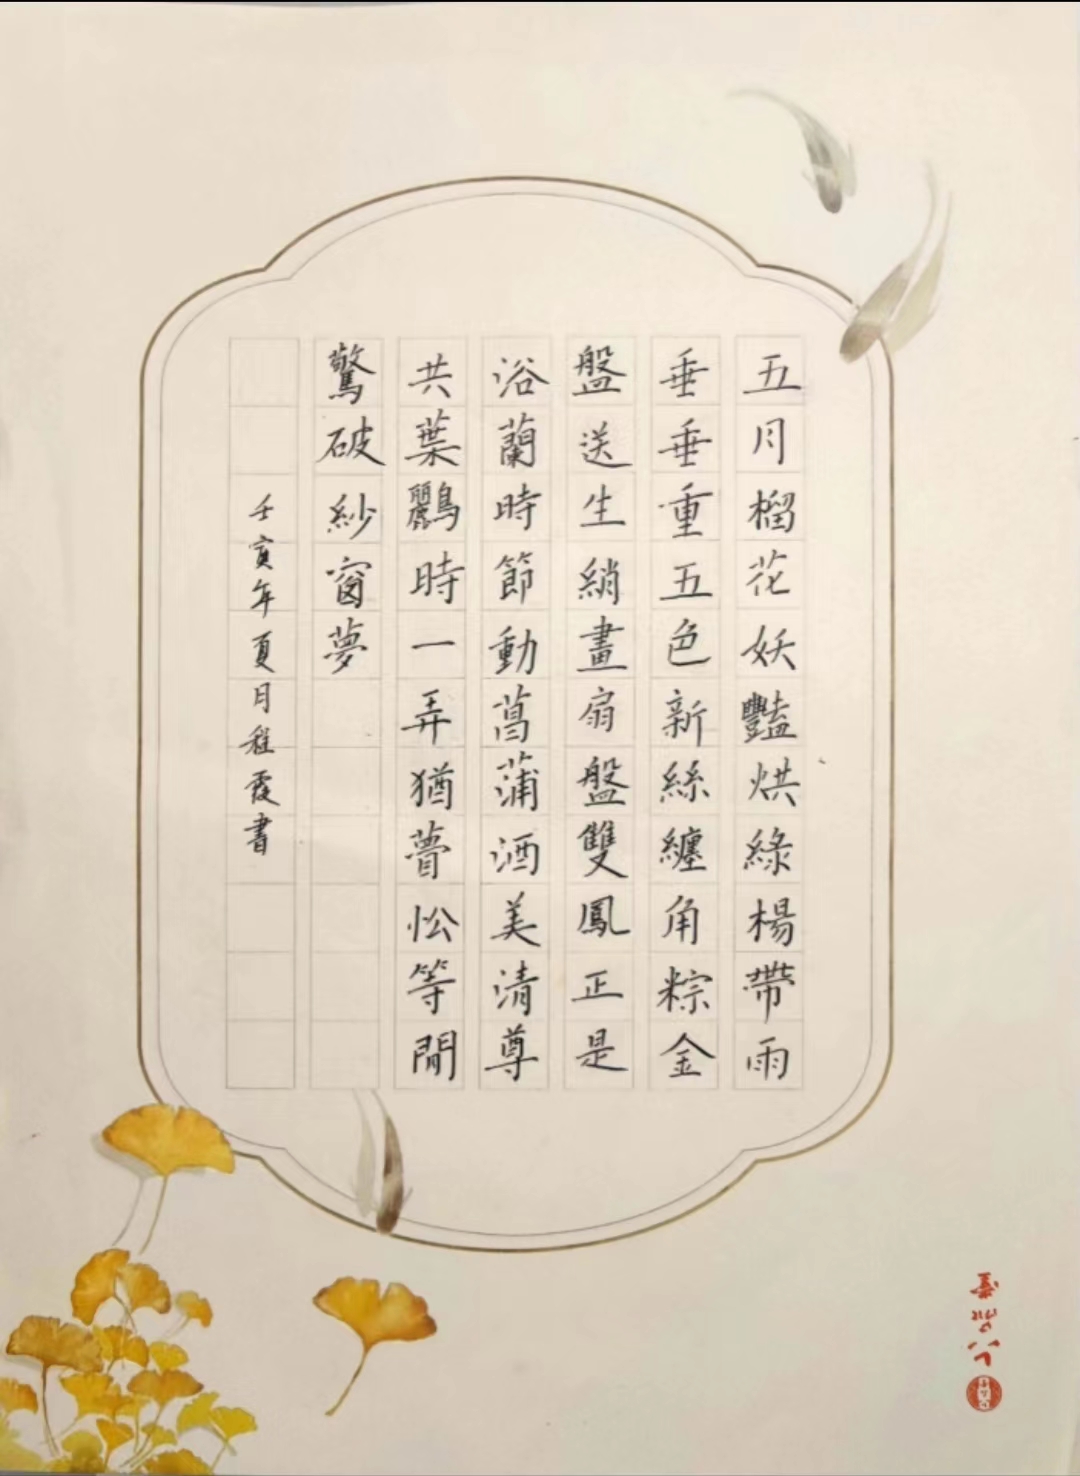 五月榴花妖豔烘綠楊帶雨
垂垂重五色新絲纏角粽金
盤送生綃畫扇盤雙鳳正是
浴蘭時節動菖蒲酒美清尊
共葉鸝時一弄猶瞢忪等閒
驚破紗窗夢
壬寅年夏月程霞書